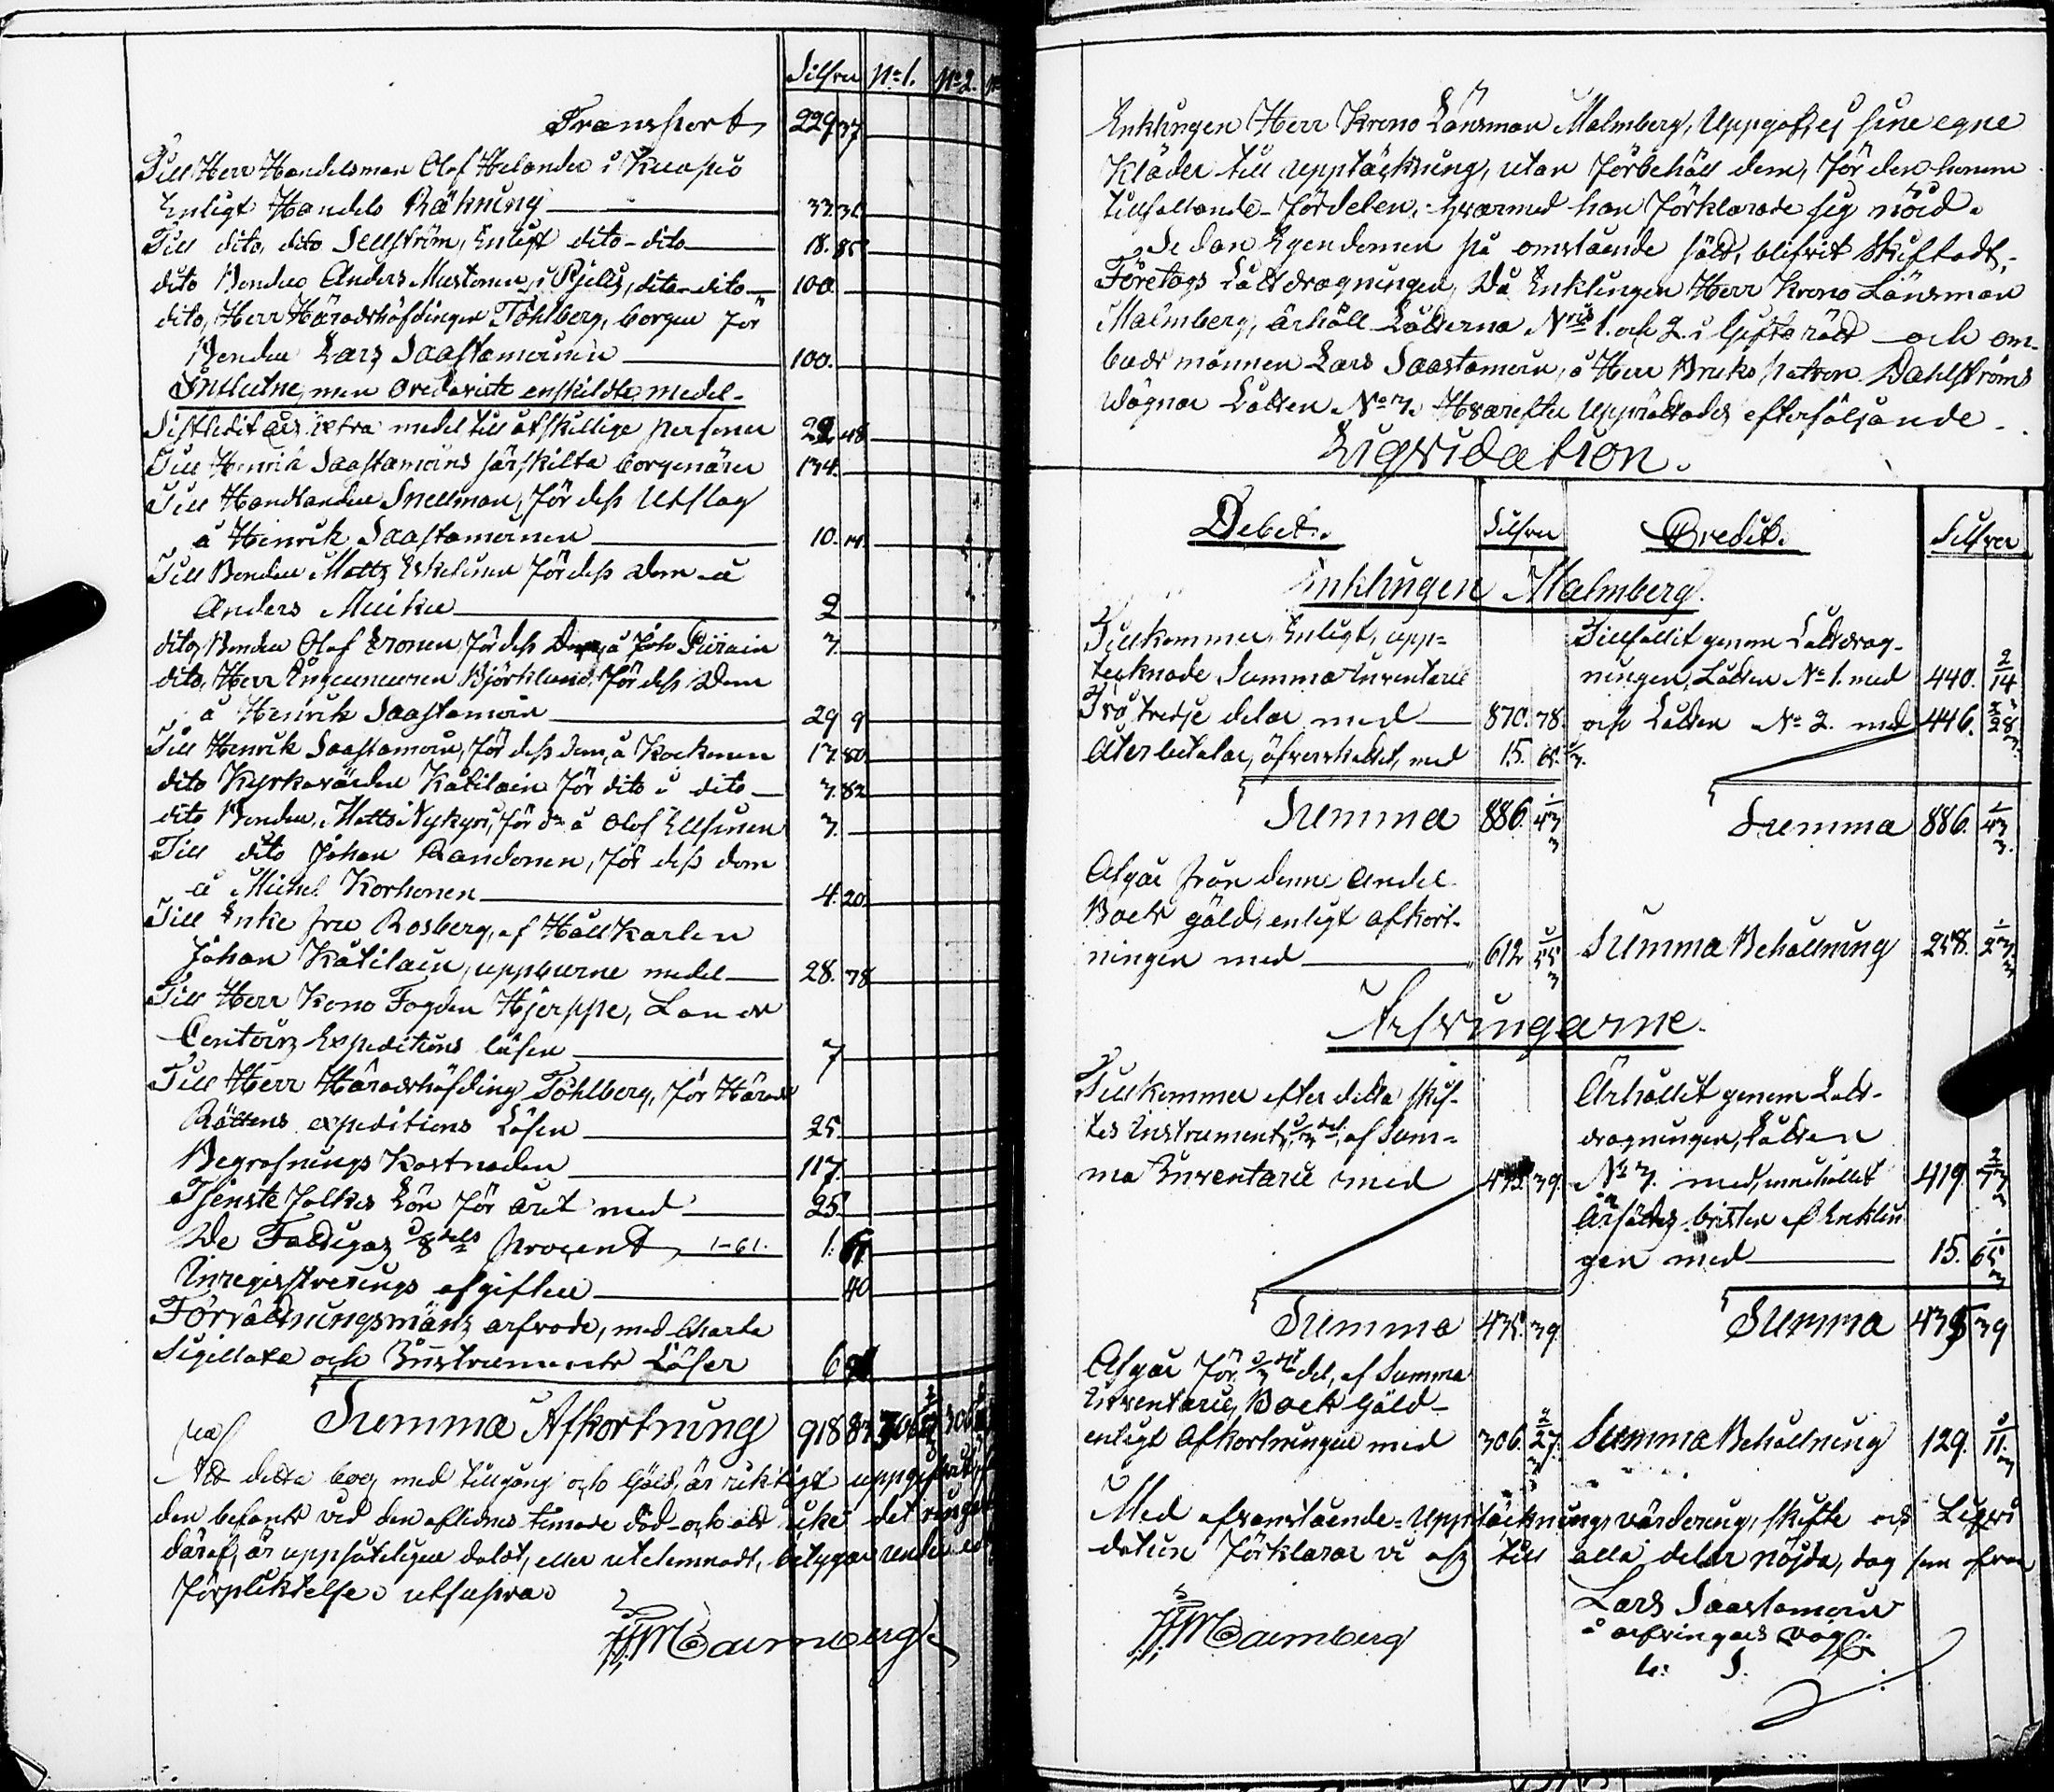 Silfver No 1. No 2.
Transport 229 37
Till Herr Handelsman Olof Helander i Kuopio
Enligt Handels Räkning 33
Till dito, dito Sellström, Enligt dito-dito 18. 85
dito Bonden Anders Mustonen, i dito-dito 100.
dito, Herr Häradshöfdingen Tóhlberg, borgen för
Bonden Lars Saastamoinen 100.
Influtne, men oredoviste enskildte medel.
extra medel till åtskillige personer 48
Till Henrik Saastamoins särskilta borgenärer 134.
Till Handlanden Snellman, för dess Utslag
å Henrik Saastamoinen 10. 14.
Till Bonden Matts Eskelinen för dess Dom å
Anders Muiku 2
dito, Bonden Olof Eronen, för dess Dom, å Joh: Piirain 3.
dito, Herr Björklund, för dess Dom
å Henrik Saastamoin 29 9
Till Henrik Saastamoin, för dess Dom, å Kockonen 13. 80.
dito Kyrkovärden Kätilain för dito å dito 3. 82
dito Bonden, Matts Nykyri, för do å Olof 3.
Till dito Johan Randonen, för dess dom
å Michel Korhonen 4. 20.
Till Enke fru Rosberg, af Hållkarlen
Johan Kätilain, uppburne medel 28. 78
Till Herr Krono Fogden Hjerppe, Lands
Contoirs Expeditions lösen 7
Till Herr Häradshöfding Tóhlberg, för Härads
Rättens expeditions Lösen 25
Begrafnings Kostnaden 117.
Tjenste folkes Lön för året med 25.
De Fattigas 1/8 dels procent 1-61. 1. 61
Inregistrerings afgiften 40
Förvaltningsmäns arfvode, med Charta
Sigillata och Instruments Löser 6
Summa Afkortning 918 83 306
Att detta boets med tillgång och Gäld, är riktigt uppgifvit
den befants vid den aflidnes timade död och att icke det ringaste
däraf, är uppsåteligen dolat, eller utelemnadt, betygar under
förpliktelse. utsupra.
Malmberg

Enklingen Herr Krono Länsman Malmberg, Uppgaf, ej sine egne
Kläder till uppteckning, utan förbehåll dem, för den honom
tillfallande fördelen, hvarmed han förklarade sig nöid.
Sedan Egendomen på omstående sätt, blifvit Skiftadt,
Företogs Lottdragningen, Då Enklingen Herr Krono Länsman
Malmberg, ärhöll Lotterna Nris 1. och 2. i Giftorätt och om-
budsmännen Lars Saastamoin, å Herr Bruks patron Dahlströms
Vägnar Lotten No 3. Hvarefter Upprättades efterföljande
Liqvidation.
Debet. Silfver Credit. Silfver
Enklingen Malmberg.
Tillkommer, Enligt, upp- Tillfallit genom Lottdrag-
tecknade Summa Inventarie ningen, Lotten No 1. med 440. 2/14
Två tredje delar med 870. 78. och Lotten No 2. med 446. 28
Återbetalar, öfverskottet, med 15. 65. 1/3.
Summa 886. 43 1/3 Summa 886. 43 1/3.
Afgår från denne Andel
Boets gäld, enligt afkort-
ningen med 612 55 1/3 Summa Behållning 258.
Arfvingarne.
Tillkommer efter detta skif- Ärhållit genom Lott-
tes Instrument, 1/3 del, af Sum- dragningen, Lotten
ma Inventarie med 39. No 3. med, innehållet 419. 73 2/3
Ärsättes bristen af Enklin
gen med 15. 65 1/3
Summa 435. 39 Summa 435 39
Afgår för 1/3 del, af Summa
Inventarie, Boets Gäld
enligt Afkortningen med 306. 27. 2/3 Summa Behållning 129. 11. 1/3
Med ofvanstående Uppteckning, värdering, skifte och Liqvi
dation förklarar vi oss till alla delar nöjda, dag som ofvan
Malmberg Lars Saastamoin
å arfvingars vägn.
L: S.